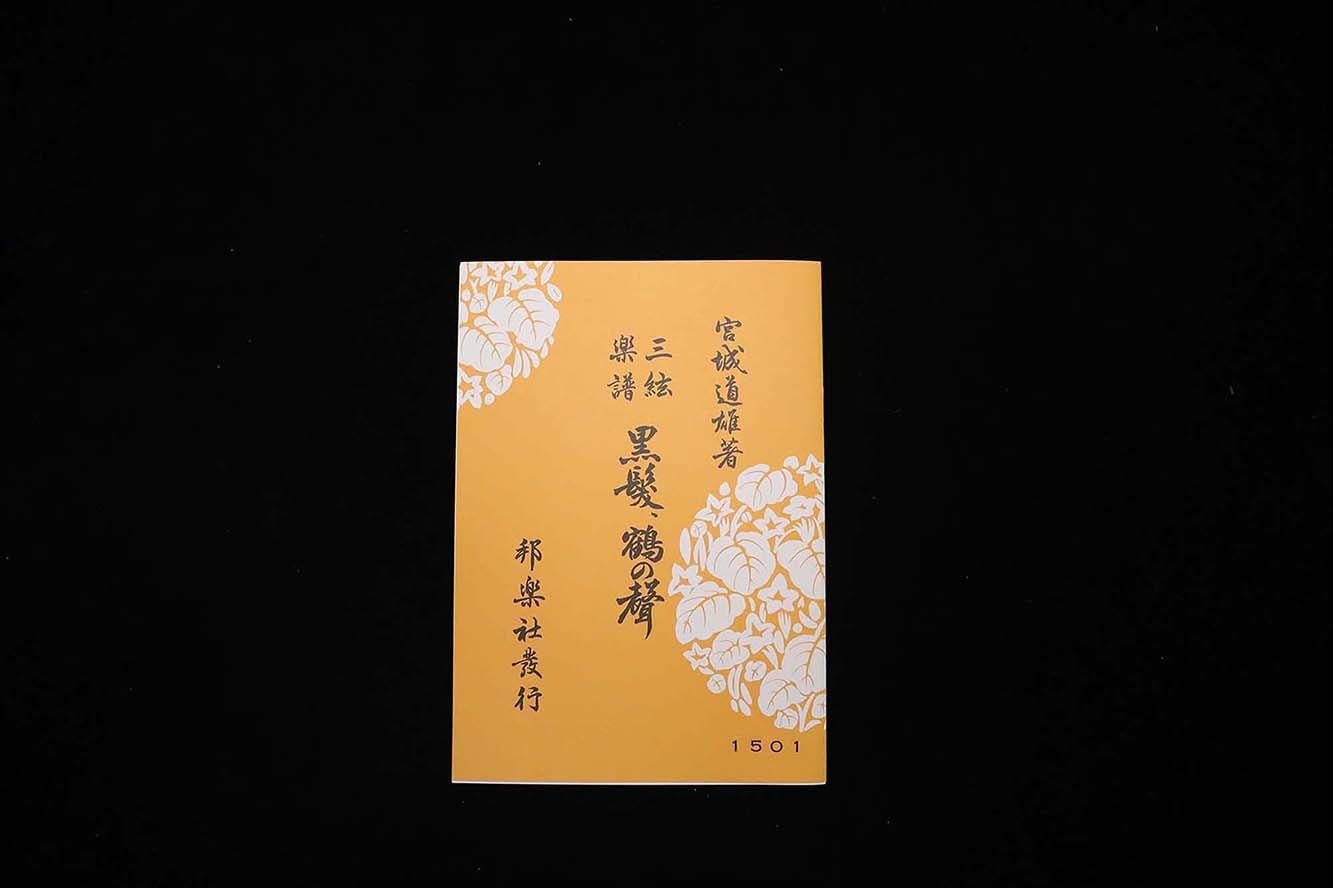 宮城道雄著
三絃
楽譜
黒髪、鶴の聲
邦楽社發行
1501